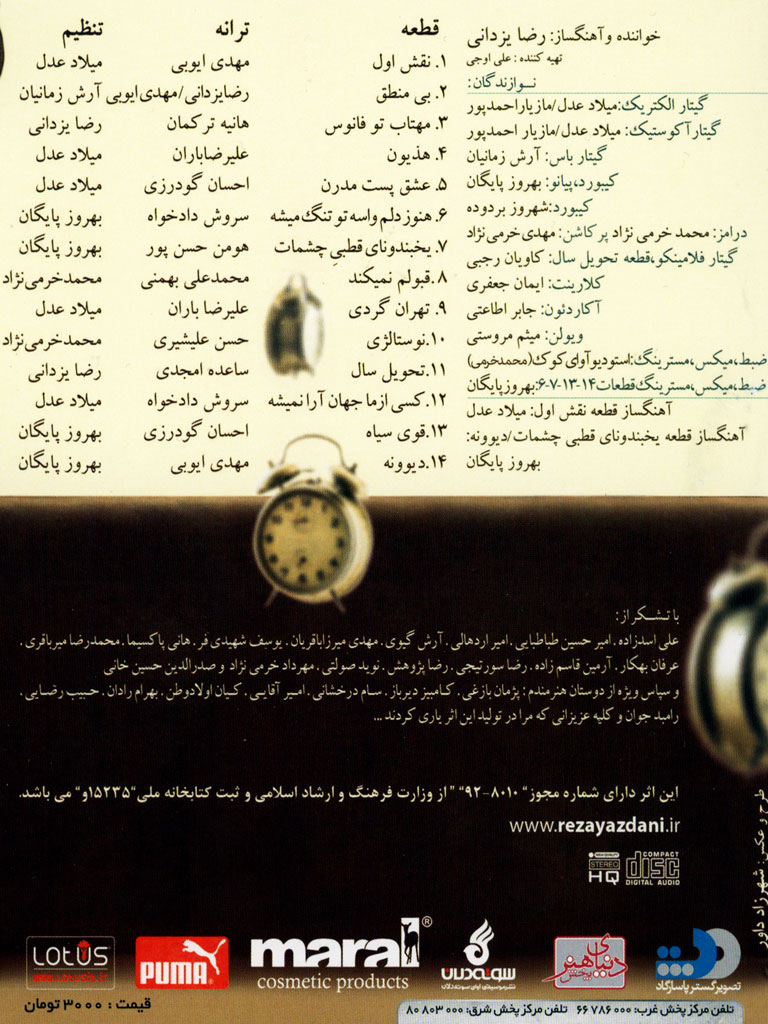 خواننده و آهنگساز: رضا یزدانی
تهیه کننده : علی اوجی
نـوازندگان:
گیتار الکتریک:میلاد عدل/مازیار احمدپور
گیتار آکوستیک: میلاد عدل/مازیار احمدپور
گیتار باس: آرش زمانیان
کیبورد،پیانو: بهروز پایگان
کیبورد:شهروز بردوده
درامز: محمد خرمی نژاد پرکاشن: مهدی خرمی نژاد
گیتار فلامینکو،قطعه تحویل سال: کاویان رجبی
کلارینت: ایمان جعفری
آکاردئون: جابر اطاعتی
ویولن: میثم مروستی
ضبط،میکس،مسترینگ:استودیو آوای کوک(محمدخرمی)
ضبط،میکس،مسترینگ قطعات۱۴-۱۳-۷-۶:بهروز پایگان
آهنگساز قطعه نقش اول: میلاد عدل
آهنگساز قطعه یخبندونای قطبی چشمات/دیوونه:
بهروز پایگان
قطعه ترانه تنظیم
۱. نقش اول مهدی ایوبی میلاد عدل
۲. بی منطق رضایزدانی/مهدی‌ایوبی آرش زمانیان
۳. مهتاب تو فانوس هانیه ترکمان رضا یزدانی
۴. هذیون علیرضاباران میلاد عدل
۵. عشق پست مدرن احسان گودرزی میلاد عدل
۶. هنوز دلم واسه تو تنگ میشه سروش دادخواه بهروز پایگان
۷. یخبندونای قطبیِ چشمات هومن حسن پور بهروز پایگان
۸.قبولم نمیکند محمدعلی بهمنی محمدخرمی‌نژاد
۹. تهران گردی علیرضا باران میلاد عدل
۱۰.نوستالژی حسن علیشیری محمدخرمی‌نژاد
۱۱.تحویل سال ساعده امجدی رضا یزدانی
۱۲.کسی ازما جهان آرا نمیشه سروش دادخواه میلاد عدل
۱۳.قوی سیاه احسان گودرزی بهروز پایگان
۱۴.دیوونه مهدی ایوبی بهروز پایگان
با تـشـکر از:
علی اسدزاده . امیر حسین طباطبایی . امیر اردهالی . آرش گیوی . مهدی میرزاباقریان . یوسف شهیدی فر . هانی پاکسیما . محمدرضا میرباقری .
عرفان بهکار . آرمین قاسم زاده . رضا سورتیجی . رضا پژوهش . نوید صولتی . مهرداد خرمی نژاد و صدرالدین حسین خانی
و سپاس ویژه از دوستان هنرمندم : پژمان بازغی . کـامبیز دیرباز . سـام درخشانی . امـیر آقایـی . کـیان اولادوطن . بهرام رادان . حـبیب رضـایی .
رامبد جوان و کلیه عزیزانی که مرا در تولید این اثر یاری کردند ...
این اثر دارای شماره مجوز“ ۸۰۱۰-۹۲” ” از وزارت فرهنگ و ارشاد اسلامی و ثبت کتابخانه ملی“۱۵۲۳۵و” می باشد.
www.rezayazdani.ir
COMPACT
disc
DIGITAL AUDIO
STEREO
HQ
طرح و عکس: شهرزاد داور
LOTUS
PUMA
maral®
cosmetic products
سوته‌دلان
دنیای هنر
پخش
تصویرگستر پاسارگاد
قیمت : ۳۰۰۰ تومان
تلفن مرکز پخش غرب: ۰۰۰ ۷۸۶ ۶۶
تلفن مرکز پخش شرق: ۰۰۰ ۸۰۳ ۸۰